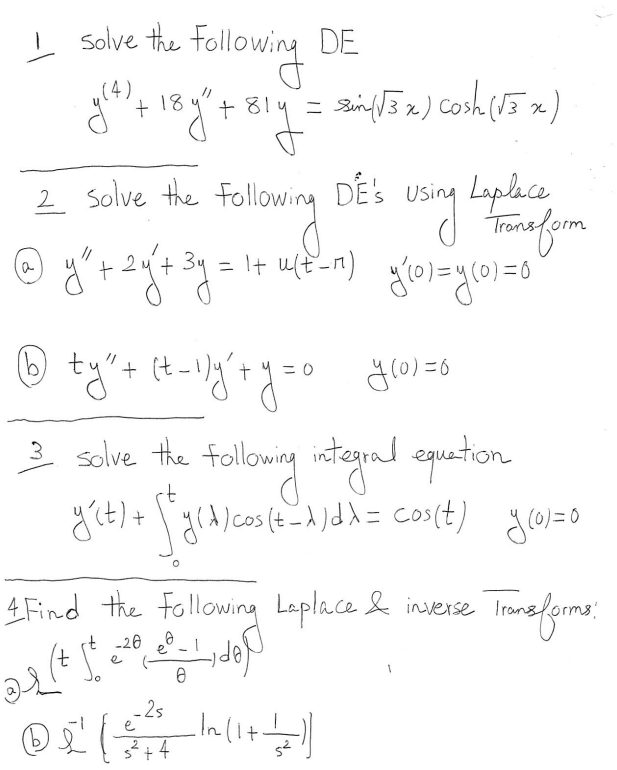 1 solve the Following DE
y⁽⁴⁾ + 18y″ + 81y = sin(√3 x) cosh(√3 x)
2 Solve the Following DE's using Laplace Transform
ⓐ y″ + 2y′ + 3y = 1 + u(t-π) y′(0)=y(0)=0
ⓑ ty″ + (t-1)y′ + y = 0 y(0)=0
3 solve the following integral equation
y′(t) + ∫₀ᵗ y(λ)cos(t-λ)dλ = cos(t) y(0)=0
4 Find the Following Laplace & inverse Transforms:
ⓐ ℒ(t ∫₀ᵗ e^(-2θ) (e^θ - 1)/θ dθ)
ⓑ ℒ⁻¹{e^(-2s)/(s²+4) - ln(1 + 1/s²)}